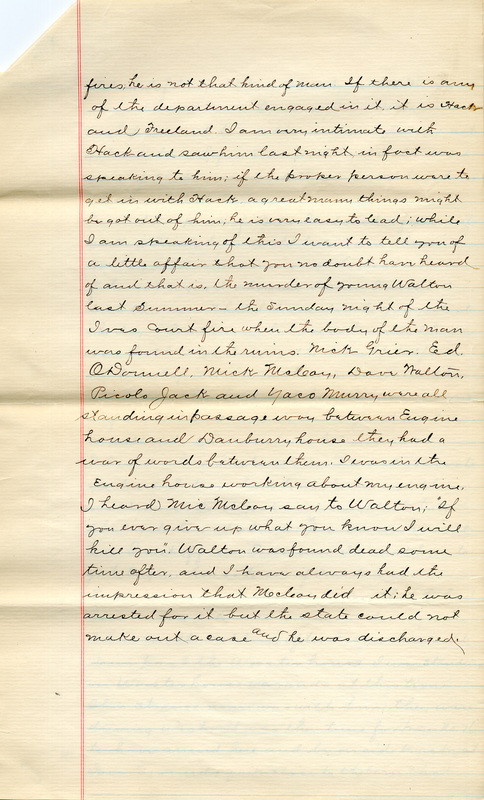 fires, he is not that kind of man If there is any
of the department engaged in it it is Hack
and Freeland I am very intimate with
Hack and saw him last night in fact was
speaking to him; if the proper person were to
get in with Hack a great many things might
be got out of him; he is very easy to lead; while
I am speaking of this I want to tell you of
a little affair that you no doubt have heard
of and that is, the murder of young Walton
last Summer - the Sunday night of the
Court fire when the body of the man
was found in the ruins. Nick Grier. Ed.
O'Donnell, Mick McCoy, Dave Walton,
Picolo Jack and Yaco Murry were all
standing in passage way between Engine
house and Danburry house they had a
war of words between them. I was in the
Engine house working about my engine.
I heard Mic McCoy say to Walton; "If
you ever give up what you know I will
kill you". Walton was found dead some
time after, and I have always had the
impression that McCoy did it; he was
arrested for it but the state could not
make out a case and he was discharged.